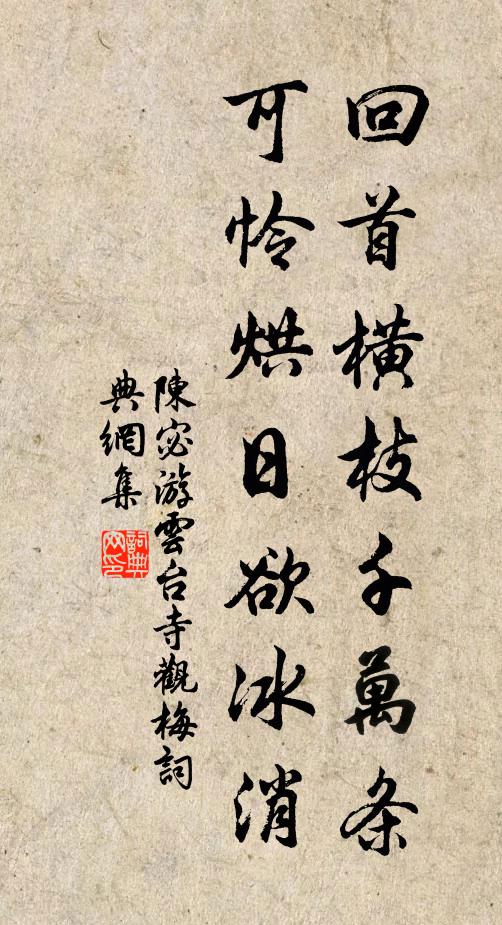 回首橫枝千萬条
可怜烘日欲冰消
陳宓游雲台寺觀梅詞
典網集
詞典网印